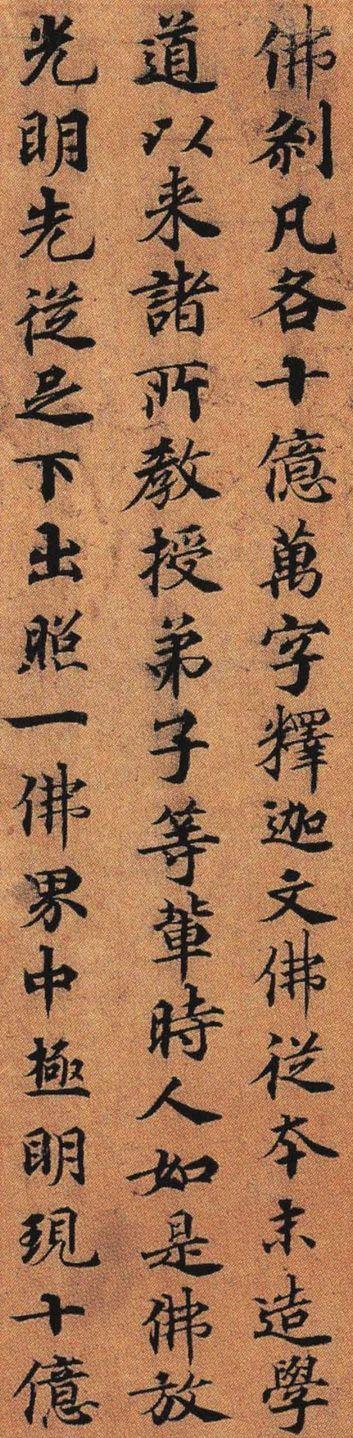 佛剎凡各十億萬字釋迦文佛從本末造學
道以来諸所教授弟子等輩時人如是佛放
光明先從足下出照一佛界中極明現十億